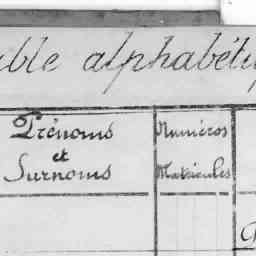 able alphabétiq
Prénoms
et
Surnoms
Numéros
Matricules